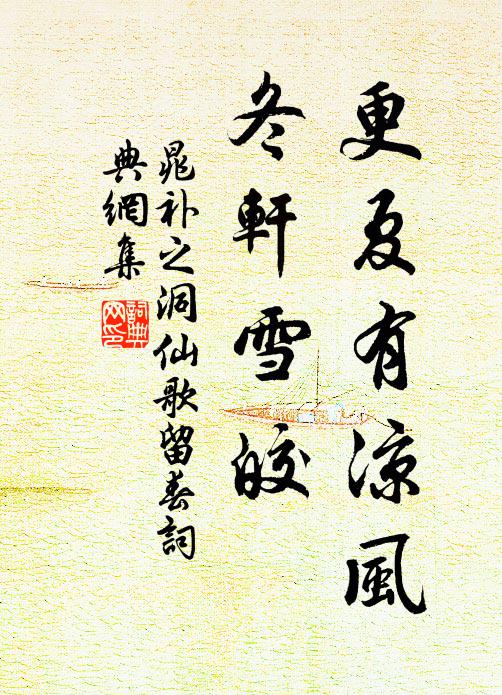 更夏有涼風
冬軒雪皎
晁补之洞仙歌留春詞
典網集
詞典網印